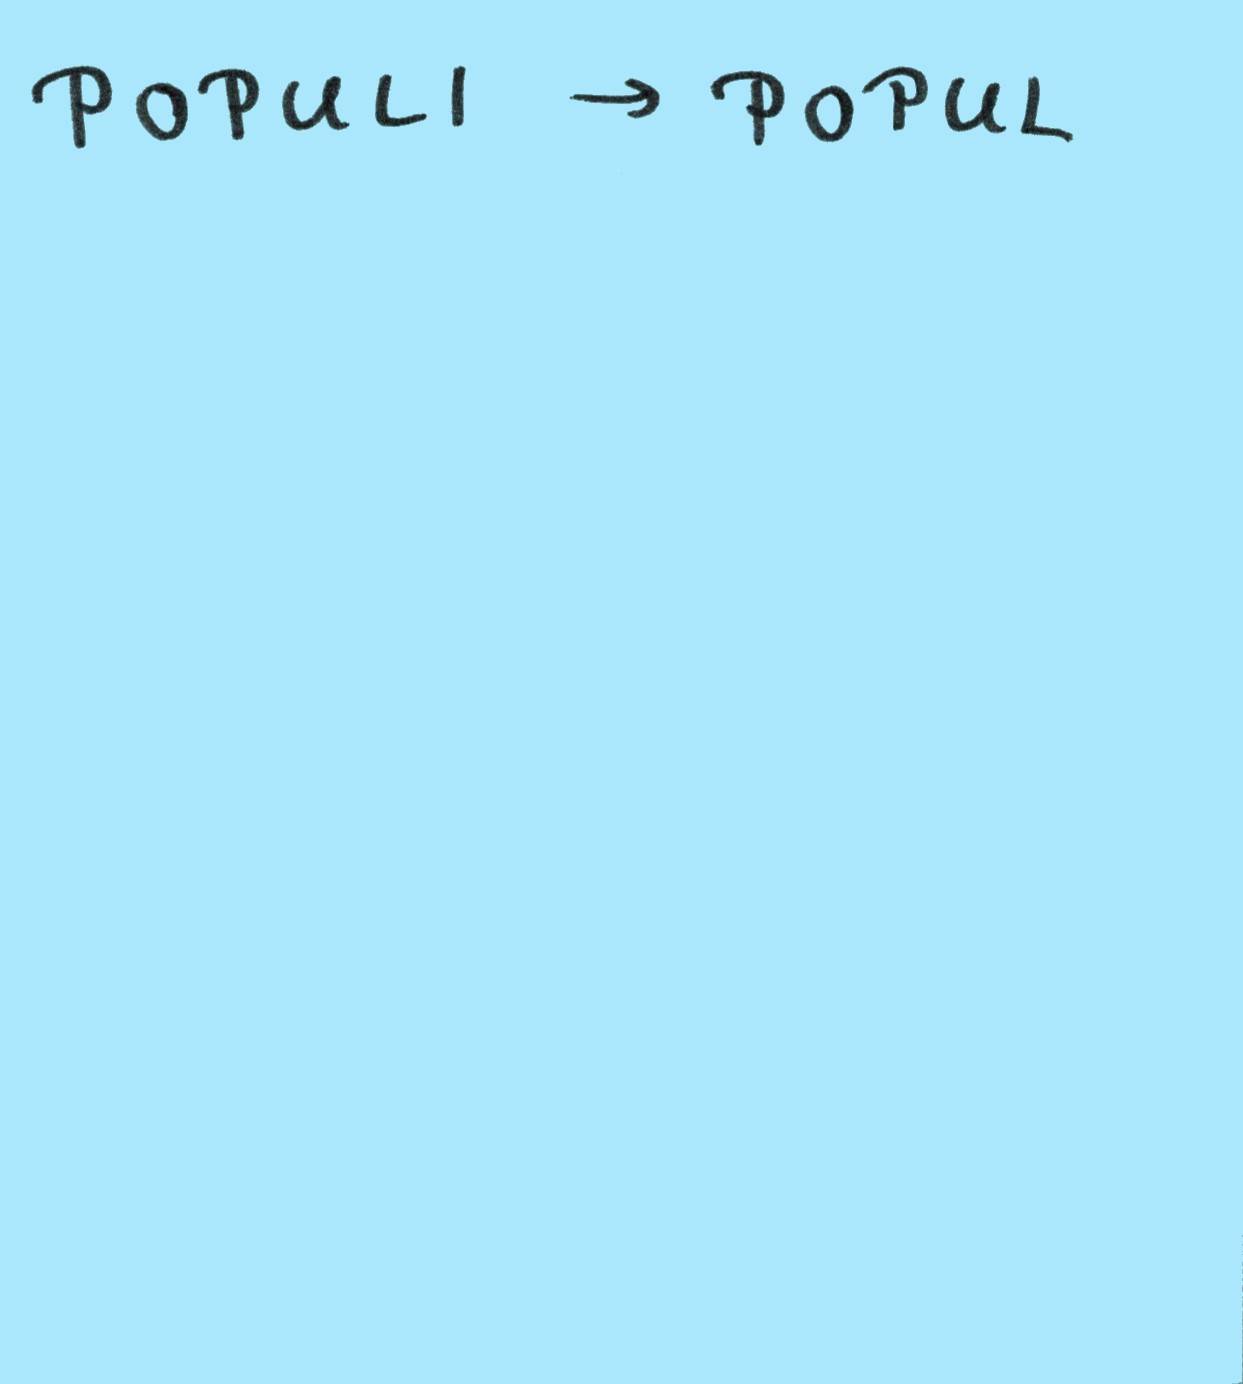 POPULI → POPUL